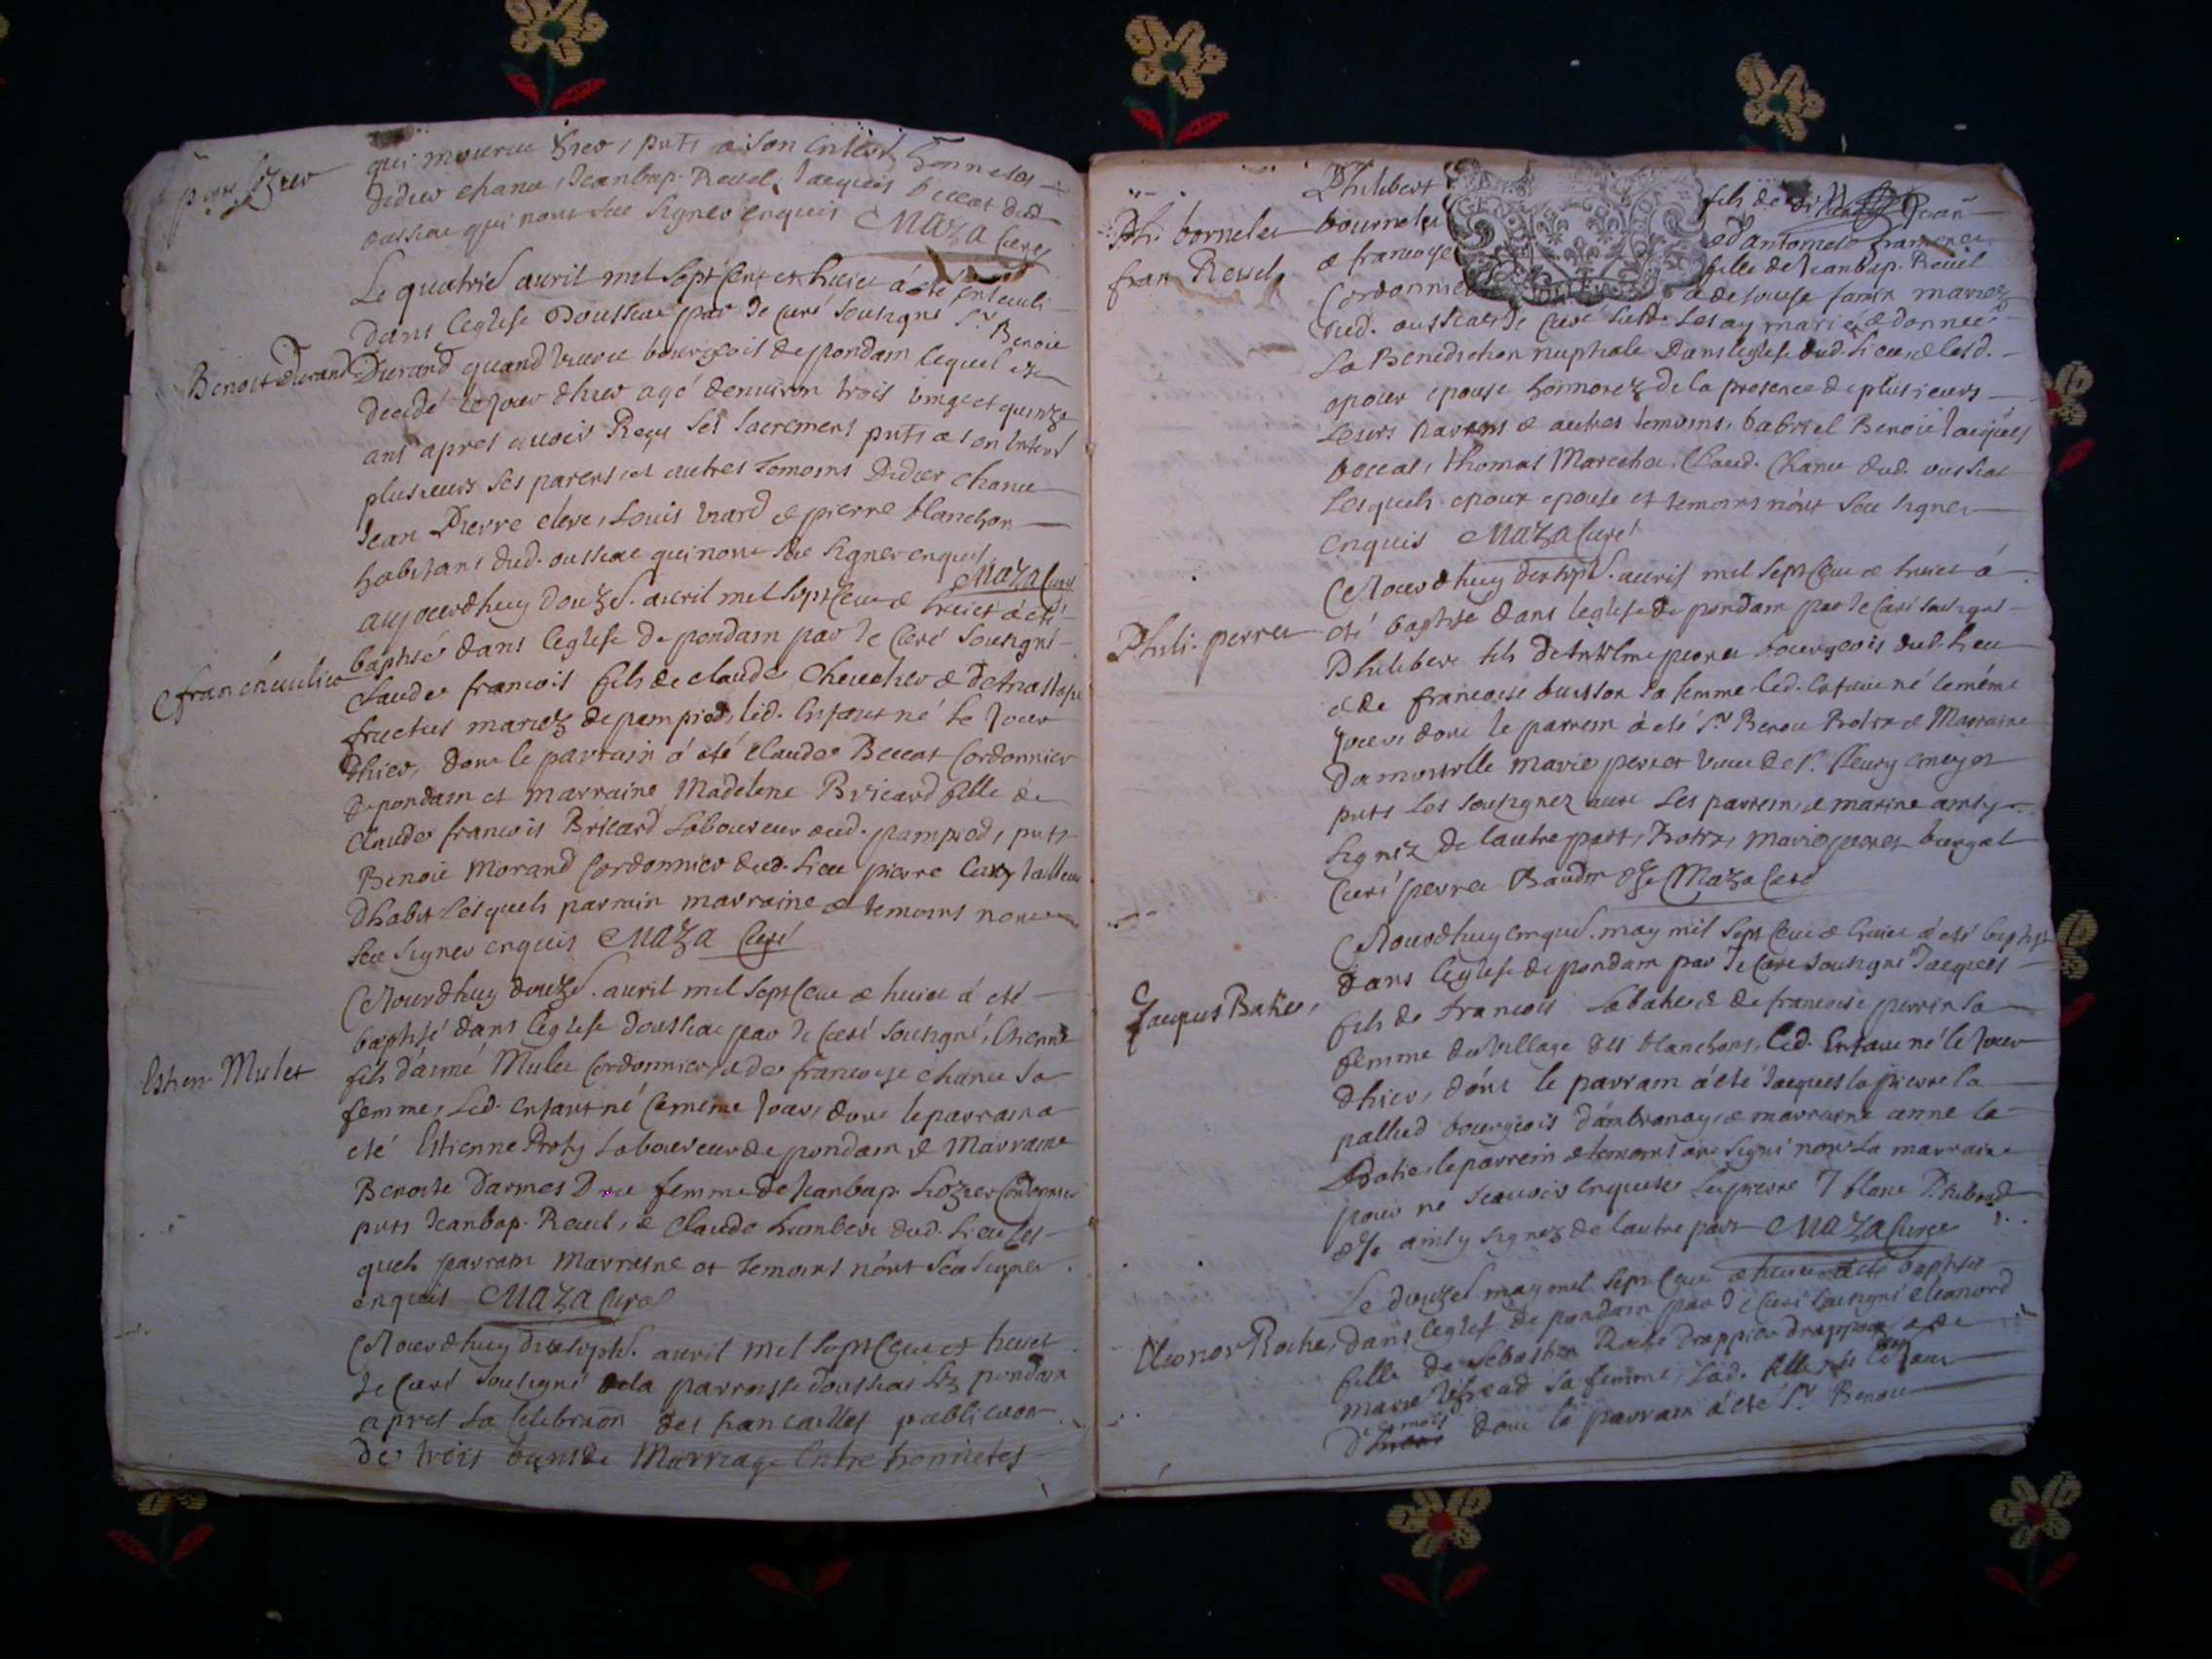 qui mourut hier, pnts a son Enterrt honnetes
didier chanu, Jeanbap. Revel, Jacques boccat dud
oussiat qui nont sceu signer enquis MAZA Curé
Le quatrie. avril mil sept cent et huict á eté enseveli
dans leglise Doussiat par Je curé sousigné Sr Benoit
Benoit Durand
Durand quand vivoit bourgeois de pondain lequel est
decedé le jour dhier agé denviron trois vingt et quinze
ans apres avoir Reçu ses sacremens pnts a son Enterrt
plusieurs ses parens, et autres temoins Didier chanu
Jean Pierre eleve, Louis vuard & pierre blanchon
habitans dud. oussiat qui nont sceu signer enquis
MAZA Curé
aujourdhuy douze. avril mil sept cent & huict á eté
baptisé dans leglise de pondain par Je Curé sousigné
Claude francois fils de claude
fructus mariez de pampied, led. Enfant né le Jour
dhier, dont le parrain á eté claude Boccat Cordonnier
de pondain et marraine Madelene Bricard fille de
Claude francois Bricard laboureur dud. pampied, pnts
Benoit Morand Cordonnier dud. lieu pierre tailleur
dhabit lesquels parrain marraine & temoins nont
sceu signer enquis MAZA Curé
Cejourdhuy douze. avril mil sept cent & huict á eté
baptisé dans leglise doussiat par Je Curé sousigné, Etienne
Estien. Mulet
fils daimé Mulet Cordonnier & de francoise chanu sa
femme, Led. enfant né le meme Jour, dont le parrain a
eté Estienne Laboureur de pondain & Marraine
Benoite femme de Jeanbap. Cordonnier
pnts Jeanbap. Revel, & Claude humbert dud. lieu les-
quels parrain Marraine et temoins n'ont sceu signer
enquis MAZA Curé
Cejourdhuy dixsept. avril mil sept cent et huict
Je Curé sousigné de la parroisse doussiat lez pondain
apres la celebraon des fiancailles publicaon
de trois bans de Marriage Entre honnetes
Philibert
Ph. bornelet
bournelet
fran Revel
& francoise
fils de
ed antoinete
fille de Jeanbap. Revel
Cordonnier
& de mariez
dud. oussiat Je Curé susd. Les ay marié & donneé
La Benediction nuptiale Dans leglise dud. Lieu, & lesd.
epoux epouse honnorez de la presence de plusieurs
Leurs parens & autres temoins, Gabriel Benoit Jacques
boccat, thomas Marechal, Claud. chanu dud. oussiat
Lesquels epoux epouse et temoins n'ont sceu signer
enquis MAZA Curé
Cejourdhuy dixsept. avril mil sept cent & huict á
Phili. perret
eté baptisé dans leglise de pondain par Je Curé sousigné
Philibert fils de Antelme perret bourgeois dud. Lieu
& de francoise buisson sa femme led. Enfant né le méme
Jour dont le parrein á eté Sr Benoit & Marraine
Damoiselle Marie perret de Sr. fleury
pnts Les sousignez avec Les parrein, & marine ainsy
signez de lautre part, marie perret
Curé perret Baudin & Je Maza Curé
Cejourdhuy cinque. may mil sept cent & huict á eté baptisé
dans leglise de pondain par Je Curé sousigné Jacques
Jacques Batie,
fils de francois & de francoise perrin sa
femme du village des blanchons, led. Enfant né le Jour
dhier, dont le parrain á eté Jacques la pierre la
pallud bourgeois d'ambronay, & marraine anne la
Batie, le parrein & temoins ont signé non la marraine
pour ne scavoir enquise Lapierre J blanc
& Je ainsy signez de lautre part MAZA Curé
Le douze. may mil sept cent & huict á eté baptisée
Eleonor Roche,
dans leglise de pondain par Je Curé sousigné eleonord
fille de Sebastien Roche drappier & de
marie sa femme, Lad. fille née le Jour
dont le parrain á eté Sr Benoit